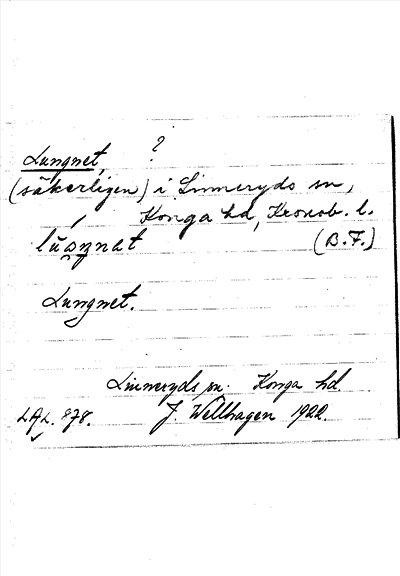 Lungnet, ?
(säkerligen) i Linneryds sn,
Konga hd, Kronob. l.
(B.F.)
Lungnet.
Linneryds sn. Konga hd.
LAL. 878. J. Wellhagen 1922.